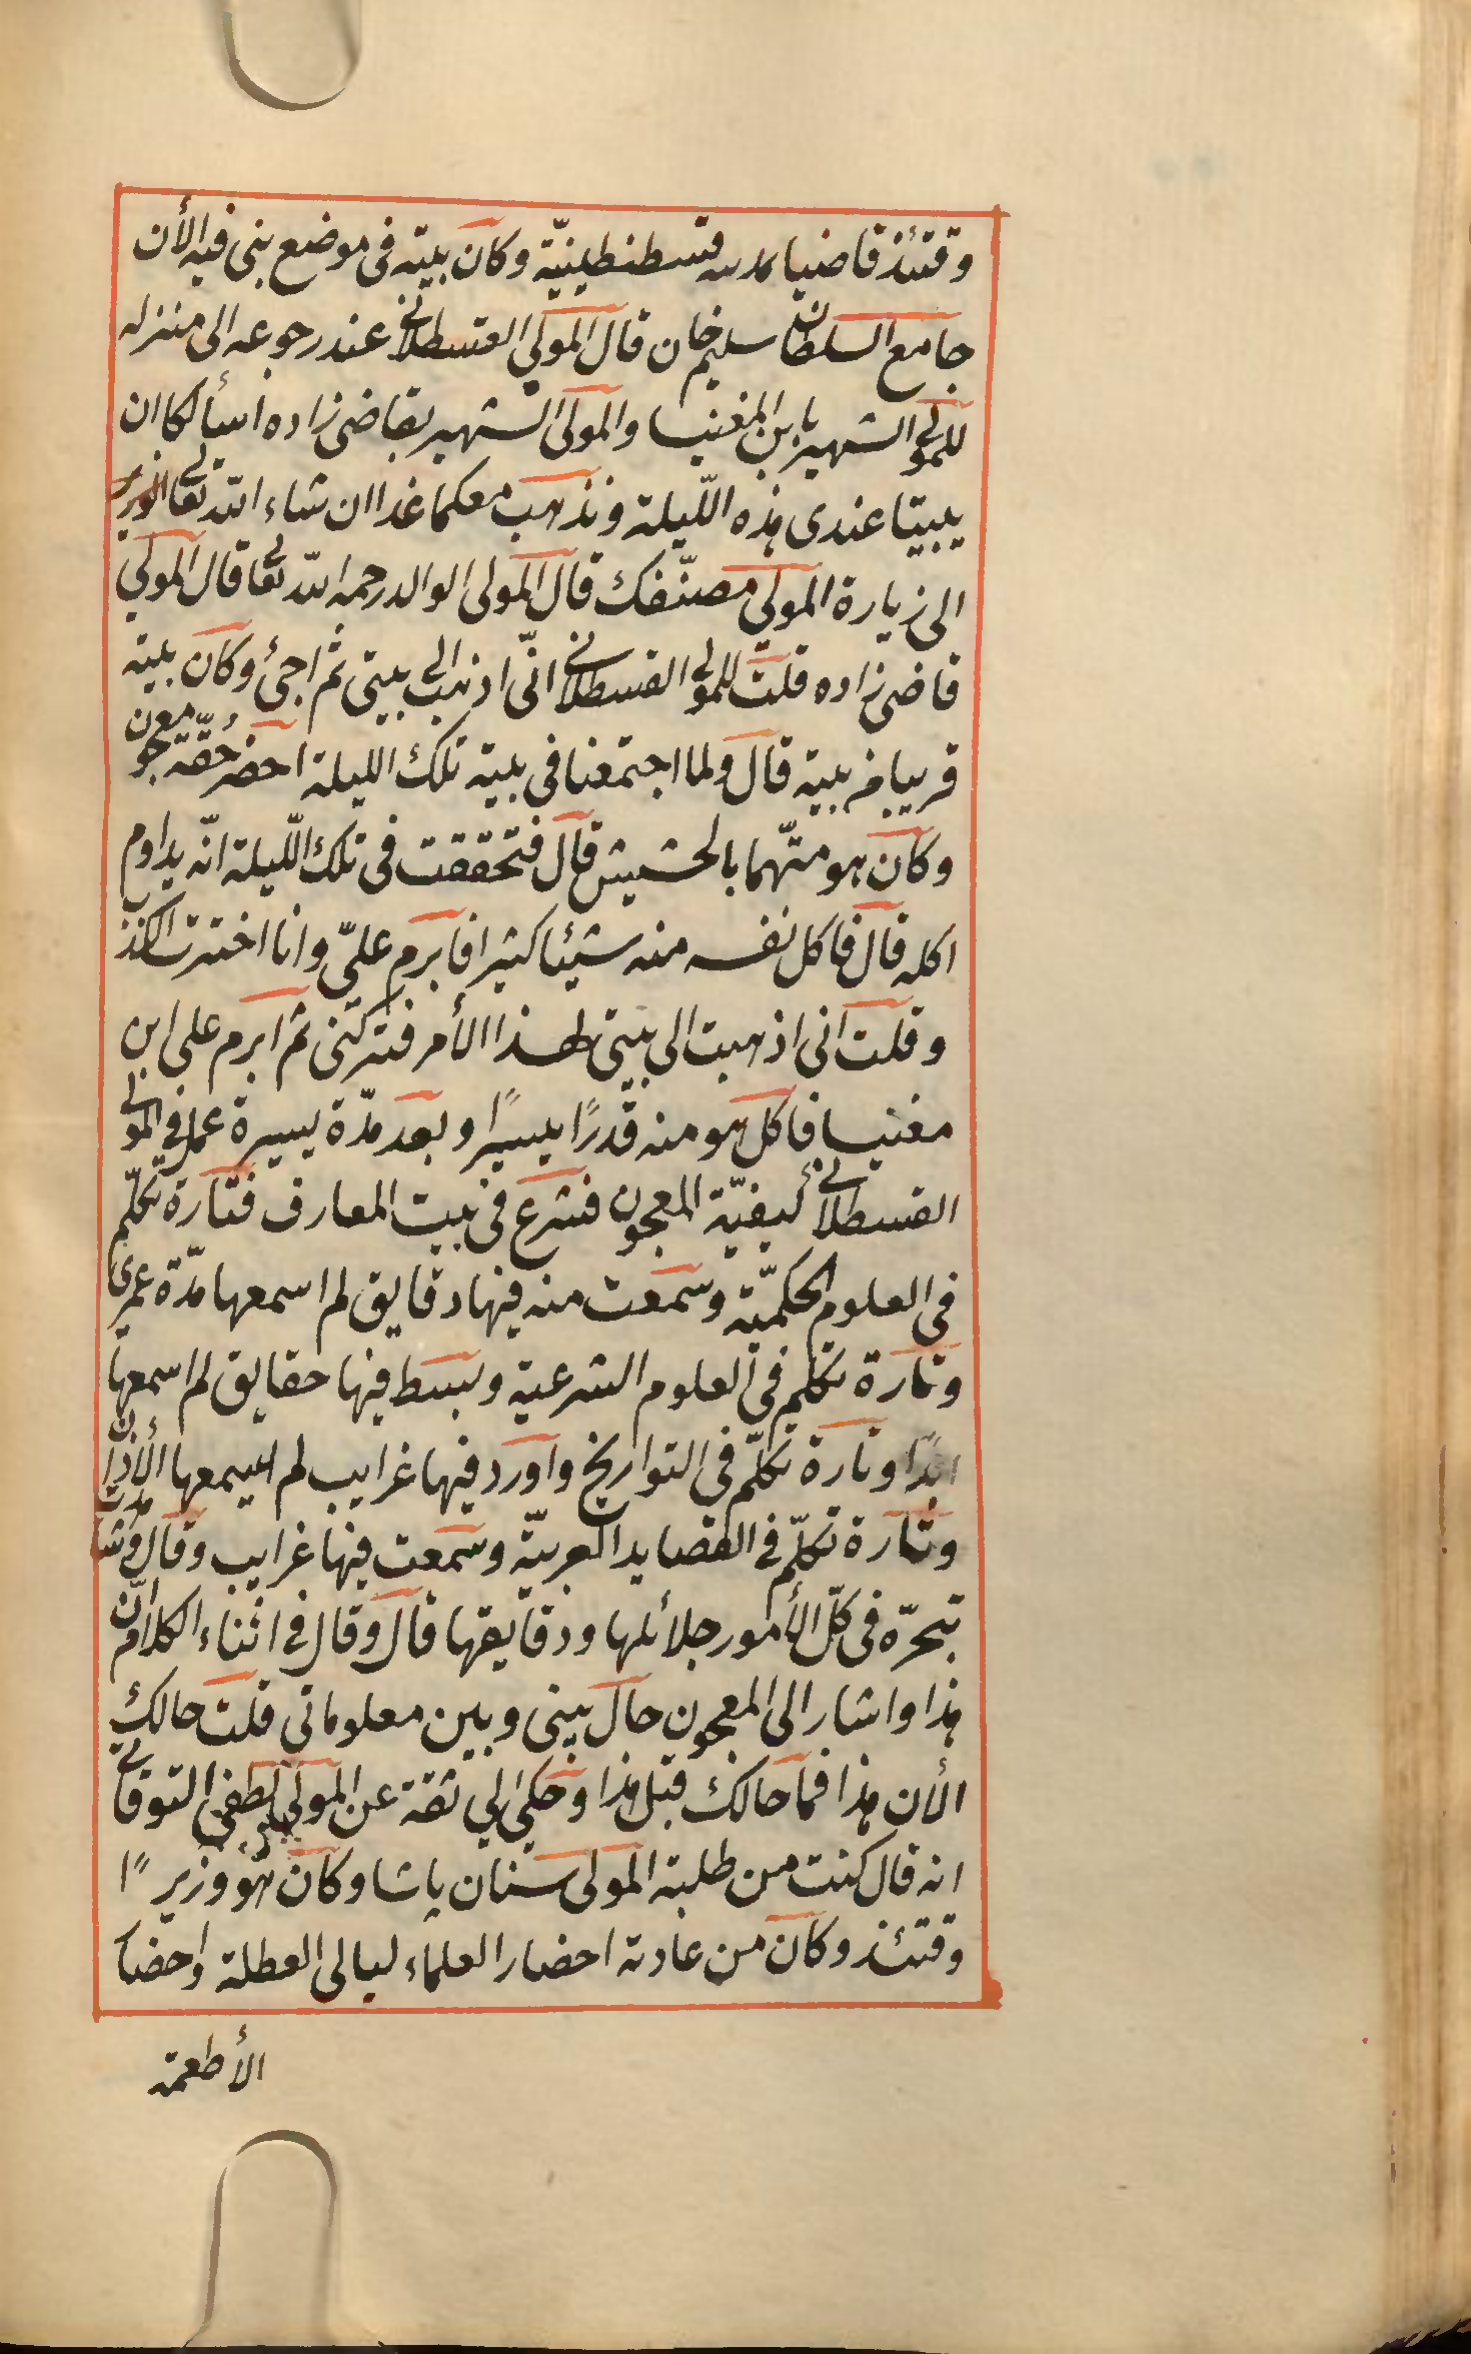 وقتئذ قاضيا بمدينة قسطنطينيّة وكان بيته فى موضع بنى فيه الأن
جامع السلطان سليم خان قال المولى القسطلانى عند رجوعه الى منزله
للمولى الشهير بابن المغنيسا والمولى الشهير بقاضى زاده اسألكما ان
يبيتا عندى هذه اللّيلة ونذهب معكما غدا ان شاء اللّه تعالى
الى زيارة المولى مصنّفك قال المولى الوالد رحمه اللّه تعا قال المولى
قاضى زاده قلت للمولى القسطلانى انّى اذهب الى بيتى ثم اجئ وكان بيته
قريبا من بيته قال ولما اجتمعنا فى بيته تلك الليلة احضر حُقّة معجون
وكان هو متّهما بالحشيش قال فتحققت فى تلك اللّيلة انّه يداوم
اكله قال فاكل نفسه منه شيئا كثيرا فابرم علىّ وانا اخترت الكذب
وقلت انى اذهبت الى بيتى لهذا الأمر فتركنى ثم ابرم على ابن
مغنيسا فاكل هو منه قدرًا يسيرًا وبعد مدّة يسيرة عمل فى المولى
القسطلانى كيفيّة المعجون فشرع فى بيت المعارف فتارة تكلّم
فى العلوم الحكميّة وسمعت منه فيها دقايق لم اسمعها مدّة عمرى
وتارة تكلّم فى العلوم الشرعية وبسط فيها حقايق لم اسمعها
ابدًا وتارة تكلّم فى التواريخ واورد فيها غرايب لم يسمعها الأذان
وتارة تكلّم فى القصايد العربيّة وسمعت فيها غرايب وقال وشاهدت
تبحّره فى كلّ الأمور جلائلها ودقايقها قال وقال فى اثناء الكلام انّ
هذا واشار الى المعجون حال بينى وبين معلوماتى قلت حالك
الأن هذا فما حالك قبل هذا وحكى لى ثقة عن المولى لطفى التوقاتى
انه قال كنت من طلبة المولى سنان پاشا وكان هو وزيرًا
وقتئذ وكان من عادته احضار العلماء ليالى العطلة واحضار
الأطعمة